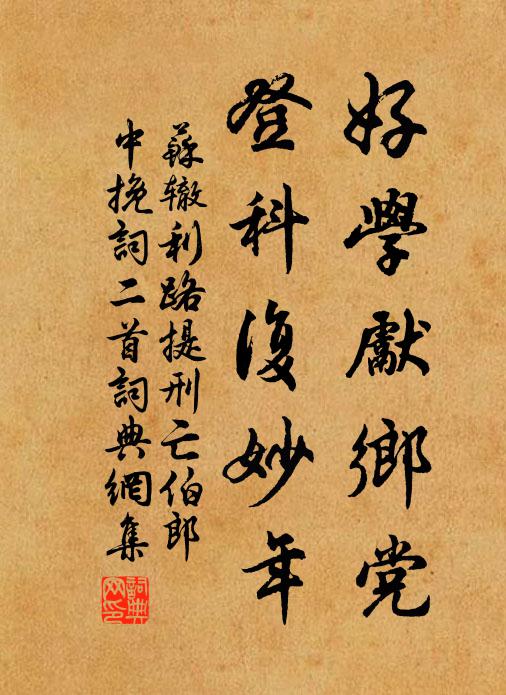 好學獻鄉党
登科復妙年
蘇辙利路提刑亡伯郎
中挽詞二首詞典網集
詞典網印